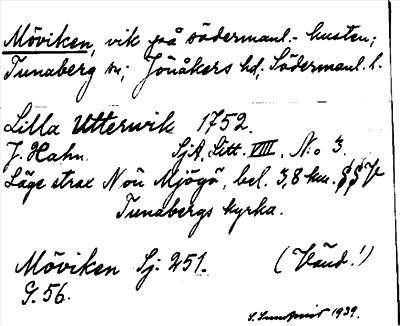 Möviken, vik på södermanl.- kusten;
Tunaberg sn; Jönåkers hd; Södermanl. l.
Lilla Utterwik 1752.
J. Hahn. SjA, Litt. VIII, N:o 3.
Läge strax N om Mjögö, bel. 3,8 km. SSV
Tunabergs kyrka.
Möviken Sj: 251. (Vänd!)
G. 56.
S. Sundqvist 1939.